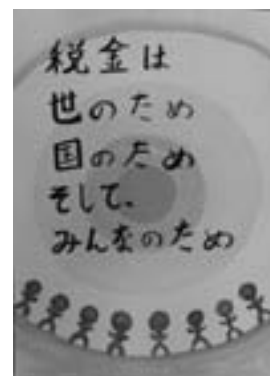 税金は
世のため
国のため
そして、
みんなのため